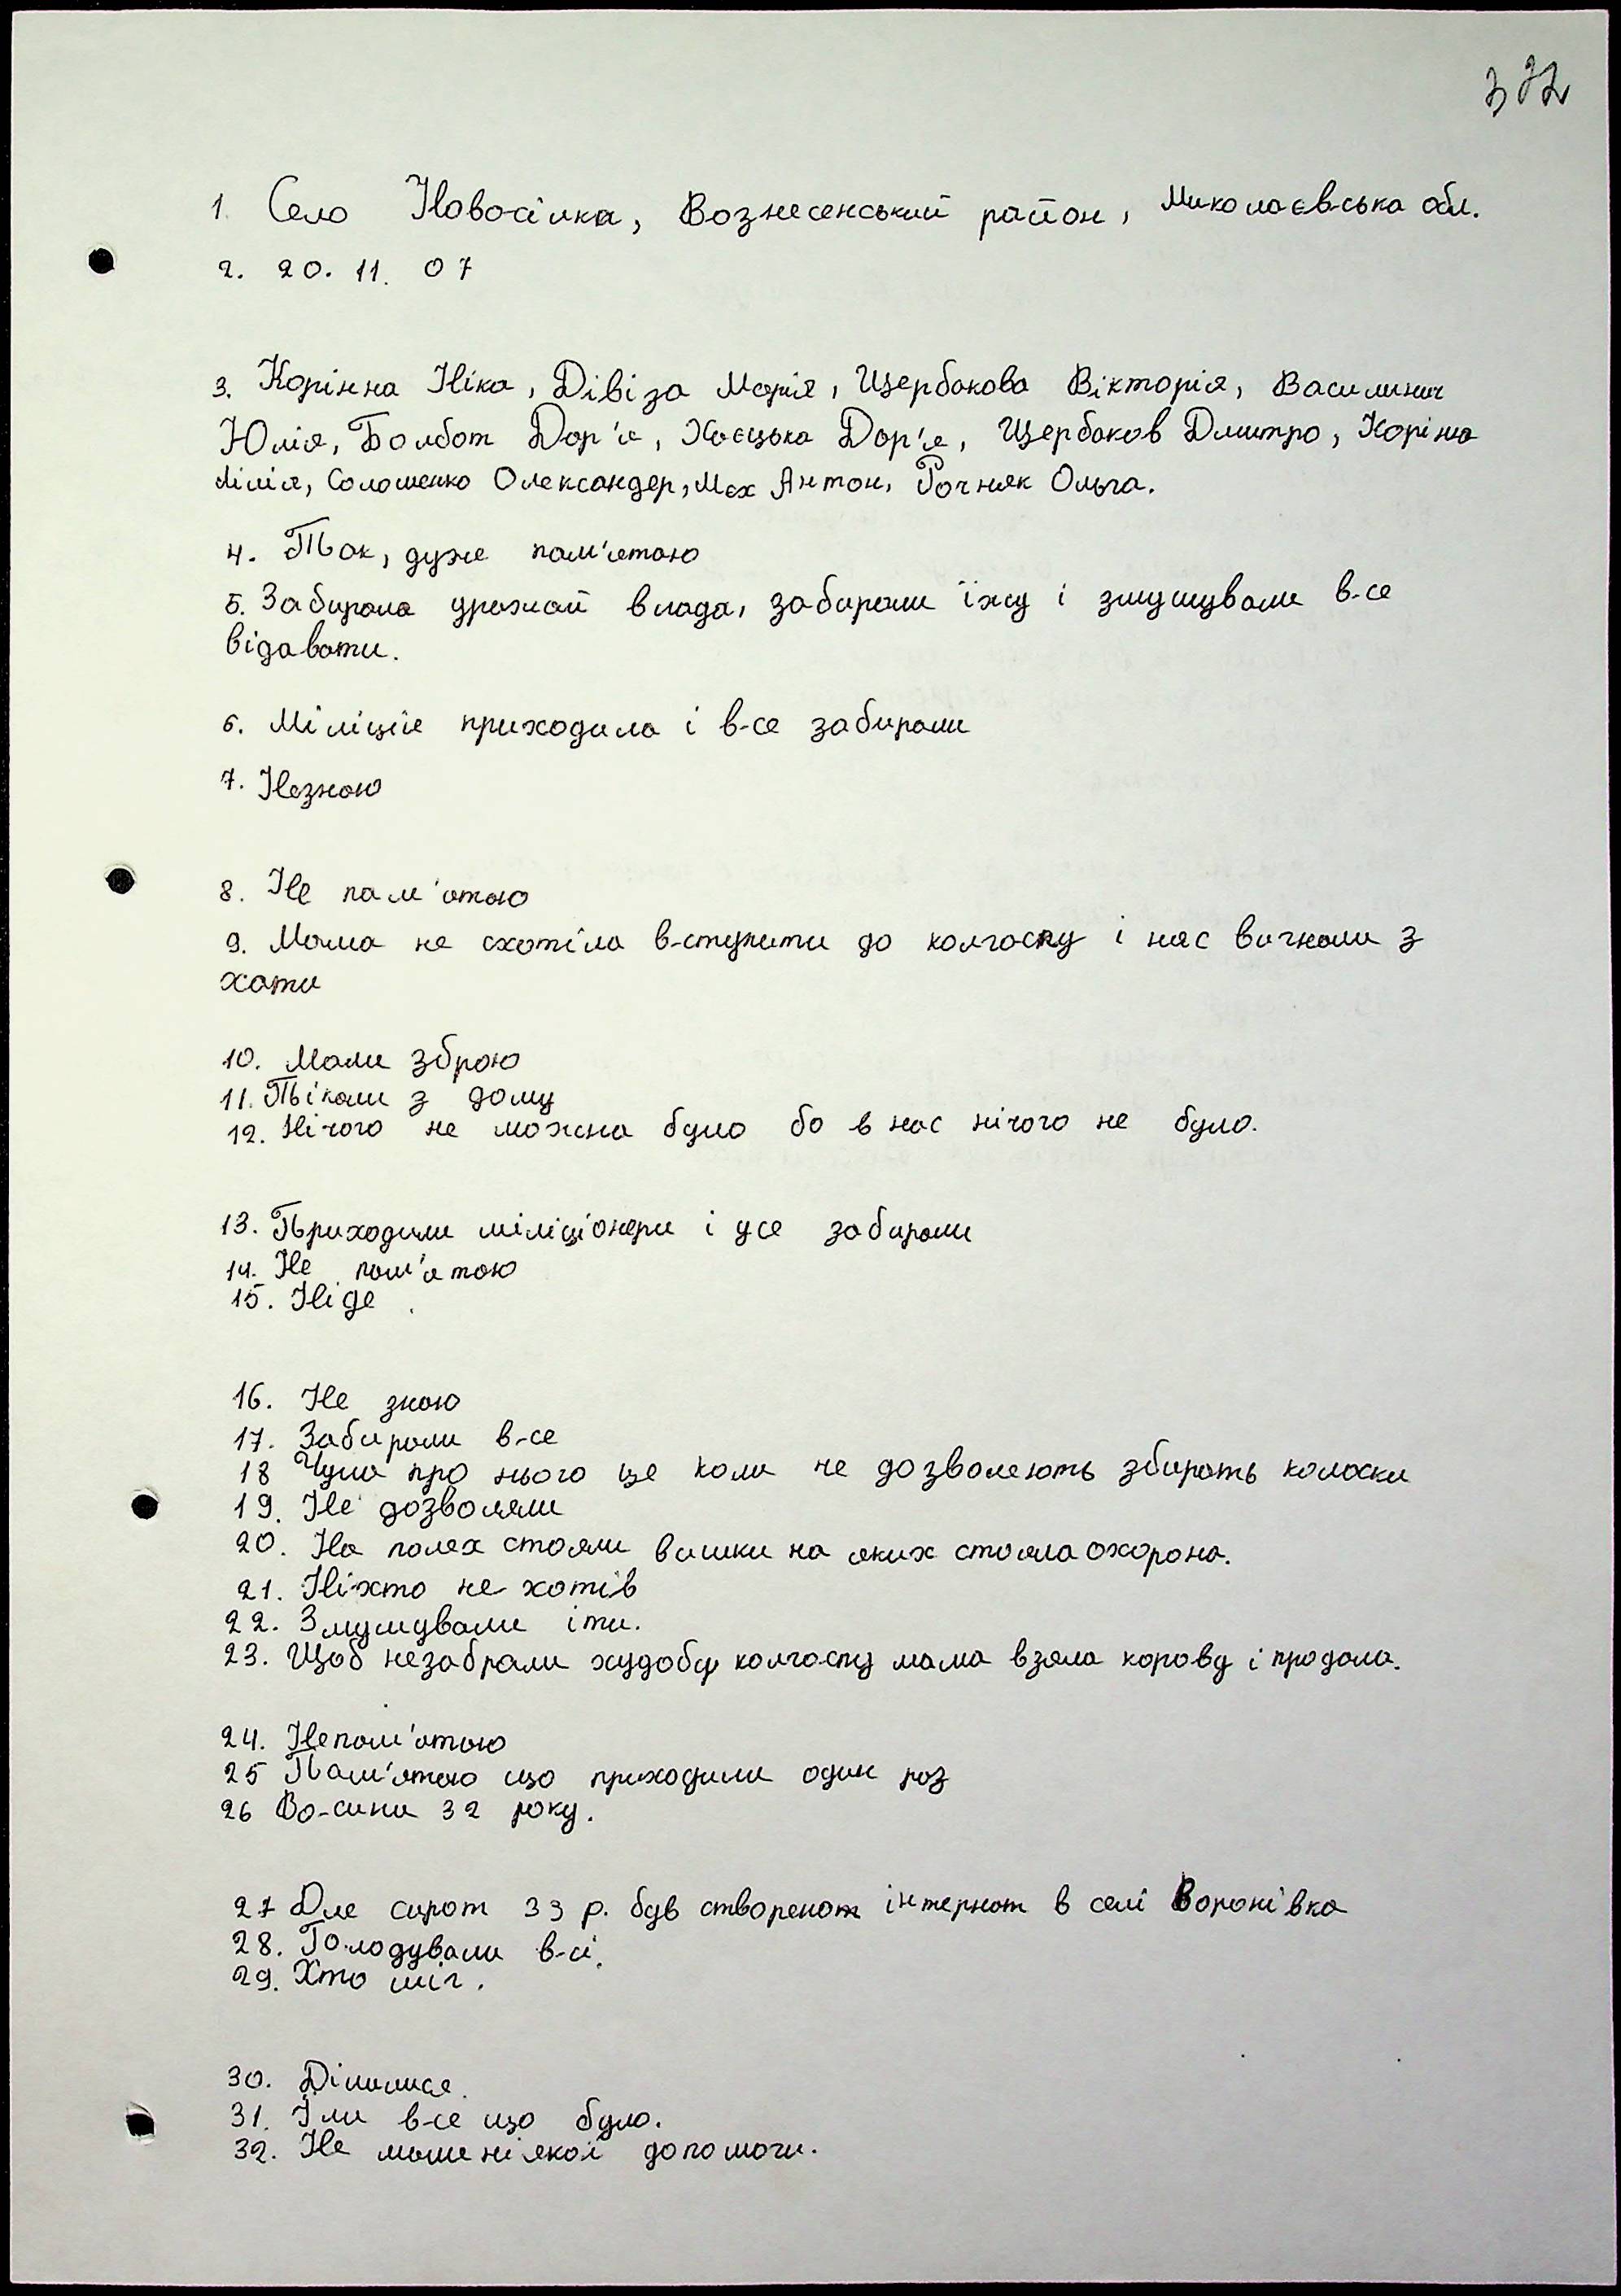 372
1. Село Новосілка, Вознесенський район, Миколаєвська обл.
2. 20. 11. 07
3. Корінна Ніка, Дівіза Марія, Щербакова Вікторія, Василинич
Юлія, Болбот Дар'я, Хаєцька Дар'я, Щербаков Дмитро, Коріна
Лілія, Соломенко Олександер, Мех Антон, Рочняк Ольга.
4. Так, дуже пам'ятаю
5. Забирала урожай влада, забирали їжу і змушували в-се
відавати.
6. Міліція приходила і в-се забирали
7. Незнаю
8. Не пам'ятаю
9. Мама не схотіла в-ступити до колгоспу і нас вигнали з
хати
10. Мали зброю
11. Тікали з дому
12. Нічого не можна було бо в нас нічого не було.
13. Приходили міліціонери і усе забирали
14. Не пам'ятаю
15. Ніде
16. Не знаю
17. Забирали в-се
18 Чула про нього це коли не дозволяють збирать колоски
19. Не дозволяли
20. На полях стояли вишки на яких стояла охорона.
21. Ніхто не хотів
22. Змушували іти.
23. Щоб незабрали худобу колгоспу мама взяла корову і продала.
24. Непам'ятаю
25 Пам'ятаю що приходили один раз
26 Во-сини 32 року.
27 Для сирот 33 р. був створенат інтернат в селі Воронівка
28. Голодували в-сі.
29. Хто міг.
30. Ділилися.
31. Їли в-се що було.
32. Не мали ніякої допомоги.